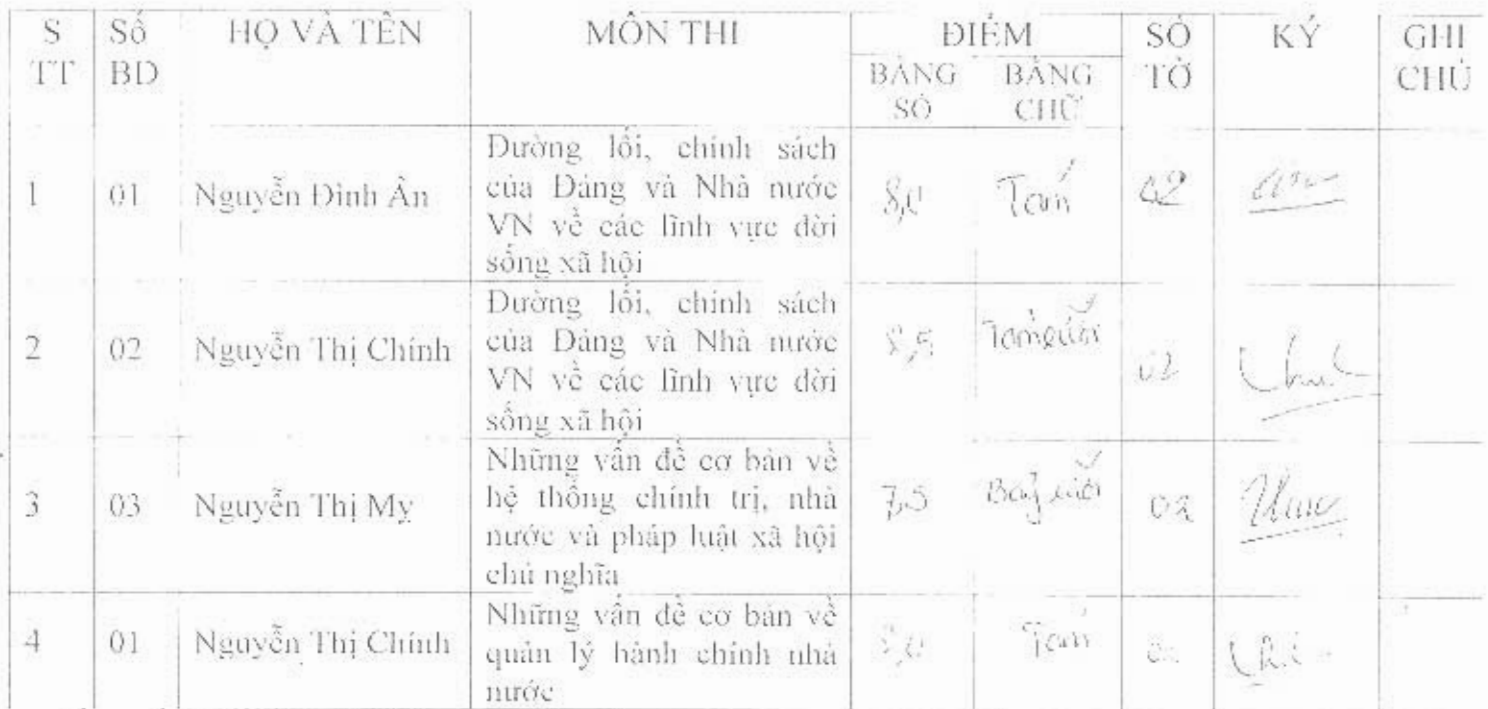 S TT Số BD HỌ VÀ TÊN MÔN THI ĐIỂM SỐ TỜ KÝ GHI CHÚ
BẰNG SỐ BẰNG CHỮ
1 01 Nguyễn Đình Ân Đường lối, chính sách
của Đảng và Nhà nước
VN về các lĩnh vực đời
sống xã hội
8,0 Tám 02
2 02 Nguyễn Thị Chính Đường lối, chính sách
của Đảng và Nhà nước
VN về các lĩnh vực đời
sống xã hội
8,5 02
3 03 Nguyễn Thị My Những vấn đề cơ bản về
hệ thống chính trị, nhà
nước và pháp luật xã hội
chủ nghĩa
7,5 02
4 01 Nguyễn Thị Chính Những vấn đề cơ bản về
quản lý hành chính nhà
nước
8,0 Tám